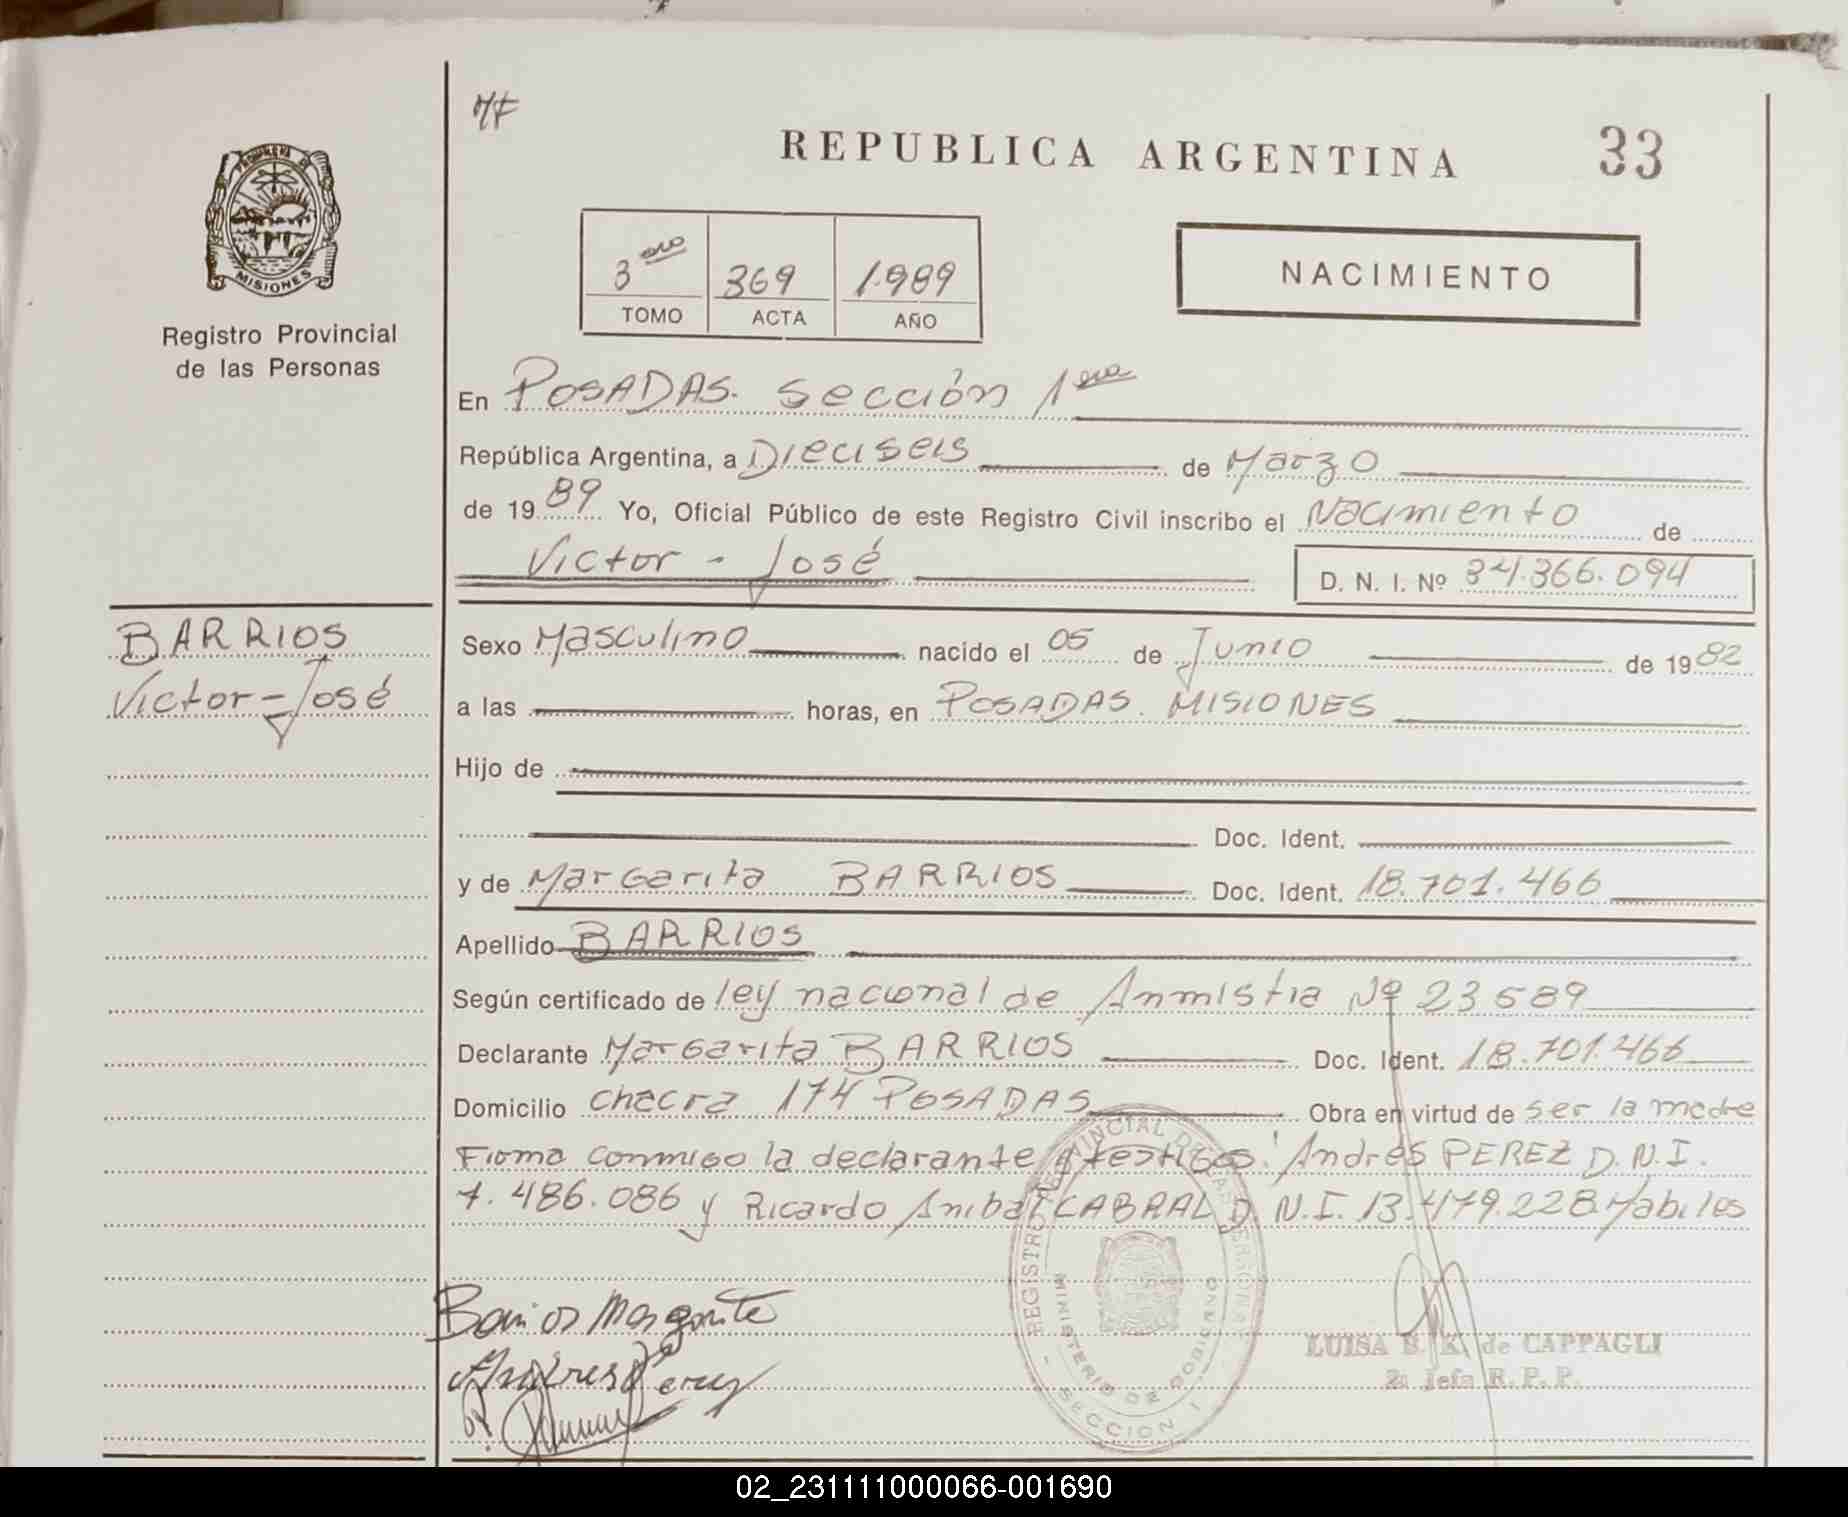 33
REPUBLICA ARGENTINA
NACIMIENTO
3ero 369 1989
TOMO ACTA AÑO
PROVINCIA DE MISIONES
Registro Provincial
de las Personas
En POSADAS. Sección 1era
República Argentina, a Dieciseis de Marzo
de 1989 Yo, Oficial Público de este Registro Civil inscribo el Nacimiento de
Victor - José D. N. I. Nº 34.366.094
BARRIOS
Victor-José
Sexo Masculino nacido el 05 de Junio de 1982
a las horas, en POSADAS. MISIONES
Hijo de
Doc. Ident.
y de Margarita BARRIOS Doc. Ident. 18.701.466
Apellido BARRIOS
Según certificado de ley nacional de Anmistia Nº 23589
Declarante Margarita BARRIOS Doc. Ident. 18.701.466
Domicilio checra 174 POSADAS Obra en virtud de ser la madre
Firma conmigo la declarante y testigos: Andrés PEREZ D.N.I.
7.486.086 y Ricardo Anibal CABRAL D.N.I. 13.479.228 Habiles
Barrios Margarita
Andres Perez
REGISTRO PROVINCIAL DE LAS PERSONAS
MINISTERIO DE GOBIERNO
SECCION 1
LUISA B. K. de CAPPAGLI
2a Jefa R. P. P.
02_231111000066-001690